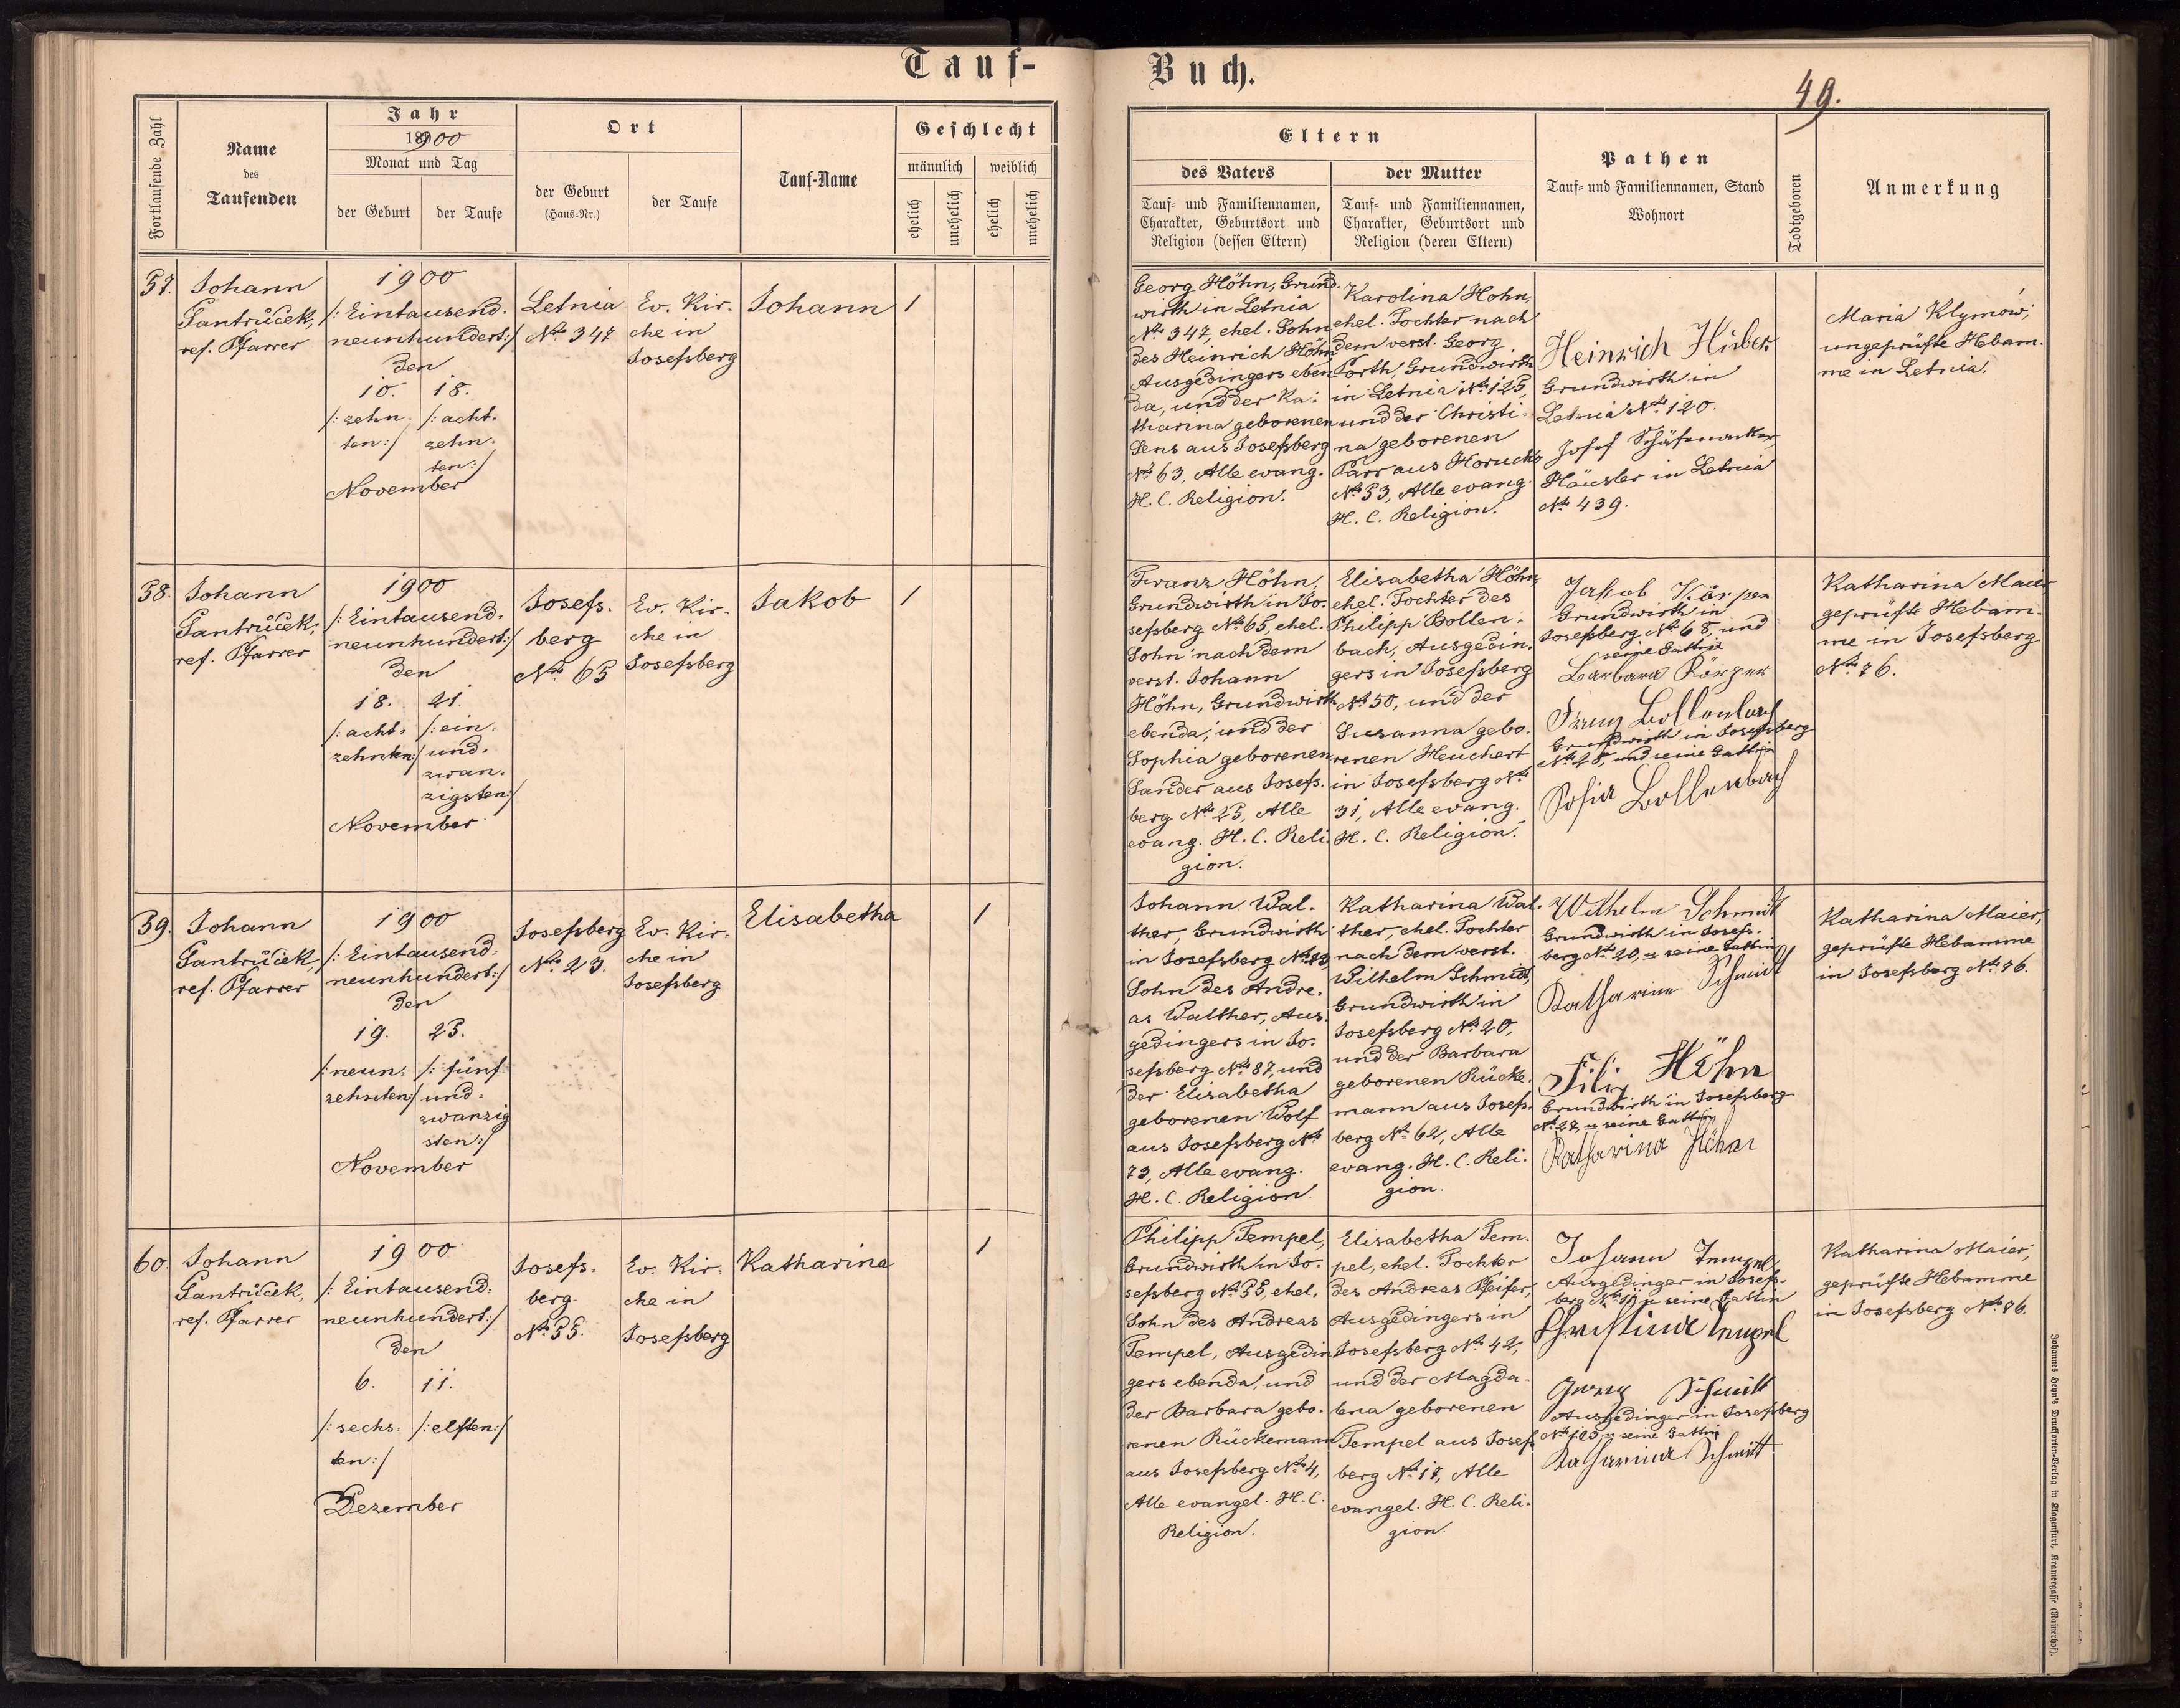 Tauf-
Fortlaufende Zahl
Name
des
Taufenden
Jahr
1900
Monat und Tag
der Geburt
der Taufe
Ort
der Geburt
(Haus-Nr.)
der Taufe
Tauf-Name
Geschlecht
männlich
weiblich
ehelich
unehelich
ehelich
unehelich
57.
Johann
Jantrůček,
ref. Pfarrer
1900
/: Eintausend-
neunhundert:/
den
10. 18.
/: zehn- /: acht-
ten:/ zehn-
ten:/
November
Letnia
No 347
Ev. Kir-
che in
Josefsberg
Johann
1
58.
Johann
Jantrůček,
ref. Pfarrer
1900
/: Eintausend-
neunhundert:/
den
18. 21.
/: acht- /: ein-
zehnten:/ und-
zwan-
zigsten:/
November
Josefs-
berg
No 65
Ev. Kir-
che in
Josefsberg
Jakob
1
59.
Johann
Jantrůček,
ref. Pfarrer
1900
/: Eintausend-
neunhundert:/
den
19. 25.
/: neun- /: fünf-
zehnten:/ und-
zwanzig
sten:/
November
Josefsberg
No 23.
Ev. Kir-
che in
Josefsberg
Elisabetha
1
60.
Johann
Jantrůček,
ref. Pfarrer
1900
/: Eintausend-
neunhundert:/
den
6. 11.
/: sechs- /: elften:/
ten:/
Dezember
Josefs-
berg
No 55.
Ev. Kir-
che in
Josefsberg
Katharina
1
Buch.
49.
Eltern
des Vaters
Tauf- und Familiennamen,
Charakter, Geburtsort und
Religion (dessen Eltern)
der Mutter
Tauf- und Familiennamen,
Charakter, Geburtsort und
Religion (deren Eltern)
Pathen
Tauf- und Familiennamen, Stand
Wohnort
Todtgeboren
Anmerkung
Georg Höhn, Grund-
wirth in Letnia
No 347, ehel. Sohn
des Heinrich Höhn
Ausgedingers eben
da, und der Ka-
tharina geborenen
Sens aus Josefsberg
No 63, Alle evang.
H. C. Religion.
Karolina Höhn,
ehel. Tochter nach
dem verst. Georg
Porth, Grundwirth
in Letnia No 125,
und der Christi-
na geborenen
Parr aus Horucko
No 53, Alle evang.
H. C. Religion.
Heinrich Huber
Grundwirth in
Letnia No 120.
Josef
Häusler in Letnia
No 439.
Maria Klymów,
ungeprüfte Hebam-
me in Letnia.
Franz Höhn,
Grundwirth in Jo-
sefsberg No 65, ehel.
Sohn nach dem
verst. Johann
Höhn, Grundwirth
ebenda, und der
Sophia geborenen
Sander aus Josefs-
berg No 25, Alle
evang. H. C. Reli-
gion.
Elisabetha Höhn
ehel. Tochter des
Philipp Bollen-
bach, Ausgedin-
gers in Josefsberg
No 50, und der
Susanna gebo-
renen Heuchert
in Josefsberg No
31, Alle evang.
H. C. Religion.
Jakob Körper
Grundwirth in
Josefsberg No 68, und
seine Gattin
Barbara Körper
Franz Bollenbach
Grundwirth in Josefsberg
No 28, und seine Gattin
Sofia Bollenbach
Katharina Maier
geprüfte Hebam-
me in Josefsberg
No 86.
Johann Wal-
ther, Grundwirth
in Josefsberg No 23,
Sohn des Andre-
as Walther, Aus-
gedingers in Jo-
sefsberg No 87, und
der Elisabetha
geborenen Wolf
aus Josefsberg No
73, Alle evang.
H. C. Religion.
Katharina Wal-
ther, ehel. Tochter
nach dem verst.
Wilhelm Schmidt,
Grundwirth in
Josefsberg No 20,
und der Barbara
geborenen Rücke-
mann aus Josefs-
berg No 62, Alle
evang. H. C. Reli-
gion.
Wilhelm Schmidt
Grundwirth in Josefs-
berg No 20, u seine Gattin
Katharina Schmidt
Filip Höhn
Grundwirth in Josefsberg
No 27, u seine Gattin
Katharina Höhn
Katharina Maier,
geprüfte Hebamme
in Josefsberg No 86.
Philipp Tempel,
Grundwirth in Jo-
sefsberg No 55, ehel.
Sohn des Andreas
Tempel, Ausgedin-
gers ebenda, und
der Barbara gebo-
renen Rückemann
aus Josefsberg No 4,
Alle evangel. H. C.
Religion.
Elisabetha Tem-
pel, ehel. Tochter
des Andreas Pfeifer,
Ausgedingers in
Josefsberg No 42,
und der Magda-
lena geborenen
Tempel aus Josefs-
berg No 17, Alle
evangel. H. C. Reli-
gion.
Johann Tempel
Ausgedinger in Josefs-
berg u seine Gattin
Christina Tempel
Georg Schmitt
Ausgedinger in Josefsberg
No 125 u seine Gattin
Katharina Schmitt
Katharina Maier,
geprüfte Hebamme
in Josefsberg No 86.
Johannes Heyn's Drucksorten-Verlag in Klagenfurt, Kramergasse (Rainerhof).